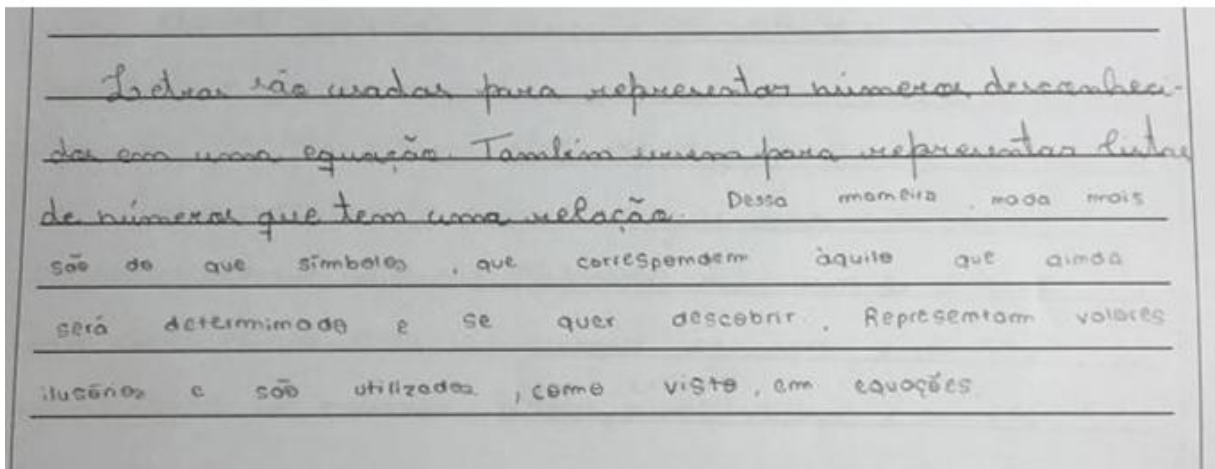 Letras são usadas para representar números desconheci-
das em uma equação. Também servem para representar listas
de números que tem uma relação. Dessa maneira, nada mais
são do que símbolos, que correspondem àquilo que ainda
será determinado e se quer descobrir. Representam valores
ilusórios e são utilizados, como visto, em equações